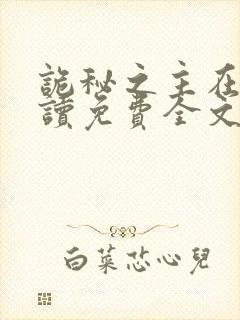 詭秘之主在
讀免費全文
白菜芯心兒